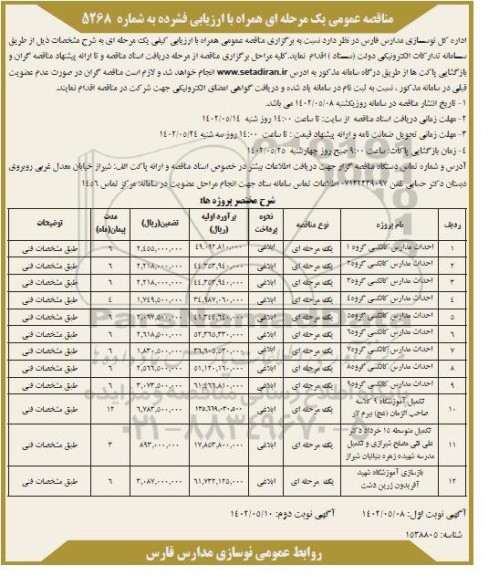 مناقصه عمومی یک مرحله ای همراه با ارزیابی فشرده به شماره ۵۲۶۸
اداره کل نوسازی مدارس فارس در نظر دارد نسبت به برگزاری مناقصه عمومی همراه با ارزیابی کیفی یک مرحله ای به شرح مشخصات ذیل از طریق
سامانه تدارکات الکترونیکی دولت (ستاد) اقدام نماید. کلیه مراحل برگزاری مناقصه از مرحله دریافت اسناد مناقصه و تا ارائه پیشنهاد مناقصه گران و
بازگشایی پاکت ها از طریق درگاه سامانه مذکور به آدرس www.setadiran.ir انجام خواهد شد و لازم است مناقصه گران در صورت عدم عضویت
قبلی در سامانه مذکور ، نسبت به ثبت نام در سامانه یاد شده و دریافت گواهی امضای الکترونیکی جهت شرکت در مناقصه اقدام نمایند.
۱- تاریخ انتشار مناقصه در سامانه روز یکشنبه ۱۴۰۲/۰۵/۰۸ می باشد.
۲- مهلت زمانی دریافت اسناد مناقصه از سایت: تا ساعت ۱۴:۰۰ روز شنبه ۱۴۰۲/۰۵/۱۴
۳- مهلت زمانی تحویل ضمانت نامه و ارائه پیشنهاد قیمت : تا ساعت ۱۴:۰۰ روز سه شنبه ۱۴۰۲/۰۵/۲۴
۴- زمان بازگشایی پاکات: ساعت ۹:۰۰ صبح روز چهارشنبه ۱۴۰۲/۰۵/۲۵
آدرس و شماره تماس دستگاه مناقصه گزار جهت دریافت اطلاعات بیشتر در خصوص اسناد مناقصه و ارائه پاکت الف: شیراز خیابان معدل غربی روبروی
دبستان دکتر حسابی تلفن ۰۷۱۳۲۳۳۹۰۹۷ اطلاعات تماس سامانه ستاد جهت انجام مراحل عضویت در سامانه: مرکز تماس ۱۴۵۶
شرح مختصر پروژه ها:
ردیف نام پروژه نوع مناقصه نحوه پرداخت برآورد اولیه (ریال) تضمین(ریال) مدت پیمان(ماه) توضیحات
۱ احداث مدارس کانکسی گروه ۱ یک مرحله ای ابلاغی ۴۹,۰۹۲,۸۱۰,۰۰۰ ۲,۴۵۵,۰۰۰,۰۰۰ ۶ طبق مشخصات فنی
۲ احداث مدارس کانکسی گروه۲ یک مرحله ای ابلاغی ۴۴,۳۵۲,۹۴۰,۰۰۰ ۲,۲۱۸,۰۰۰,۰۰۰ ۶ طبق مشخصات فنی
۳ احداث مدارس کانکسی گروه۳ یک مرحله ای ابلاغی ۴۴,۳۵۲,۹۴۰,۰۰۰ ۲,۲۱۸,۰۰۰,۰۰۰ ۶ طبق مشخصات فنی
۴ احداث مدارس کانکسی گروه۴ یک مرحله ای ابلاغی ۳۴,۹۸۷,۰۶۰,۰۰۰ ۱,۷۴۹,۵۰۰,۰۰۰ ۴ طبق مشخصات فنی
۵ احداث مدارس کانکسی گروه۵ یک مرحله ای ابلاغی ۴۱,۳۴۴,۶۴۰,۰۰۰ ۲,۰۶۷,۵۰۰,۰۰۰ ۶ طبق مشخصات فنی
۶ احداث مدارس کانکسی گروه۶ یک مرحله ای ابلاغی ۵۲,۳۶۵,۳۳۰,۰۰۰ ۲,۶۱۸,۵۰۰,۰۰۰ ۶ طبق مشخصات فنی
۷ احداث مدارس کانکسی گروه۷ یک مرحله ای ابلاغی ۱,۸۳۰,۵۰۰,۰۰۰ ۶ طبق مشخصات فنی
۸ احداث مدارس کانکسی گروه۸ یک مرحله ای ابلاغی ۵۱,۱۲۰,۱۶۰,۰۰۰ ۲,۵۶۶,۵۰۰,۰۰۰ ۶ طبق مشخصات فنی
۹ احداث مدارس کانکسی گروه۹ یک مرحله ای ابلاغی ۶۱,۴۶۶,۸۱۰,۰۰۰ ۳,۰۷۳,۵۰۰,۰۰۰ ۶ طبق مشخصات فنی
۱۰ تکمیل آموزشگاه ۹ کلاسه صاحب الزمان (عج) بیرم لار یک مرحله ای ابلاغی ۱۳۵,۶۶۹,۰۳۰,۵۰۰ ۶,۷۸۳,۵۰۰,۰۰۰ ۱۲ طبق مشخصات فنی
۱۱ تکمیل متوسطه ۱۵ خرداد دکتر علی نقی مصلح شیرازی و تکمیل مدرسه شهیده زهره بنیانیان شیراز یک مرحله ای ابلاغی ۱۷,۸۵۳,۸۰۰,۰۰۰ ۸۹۳,۰۰۰,۰۰۰ ۳ طبق مشخصات فنی
۱۲ بازسازی آموزشگاه شهید آفریدون زرین دشت یک مرحله ای ابلاغی ۶۱,۷۳۲,۱۲۵,۰۰۰ ۳,۰۸۷,۰۰۰,۰۰۰ ۶ طبق مشخصات فنی
آگهی نوبت اول: ۱۴۰۲/۰۵/۰۸ آگهی نوبت دوم: ۱۴۰۲/۰۵/۱۰
شناسه: ۱۵۳۸۸۰۵
روابط عمومی نوسازی مدارس فارس
ParsNamadData
۰۲۱-۸۸۳۴۹۶۷۰